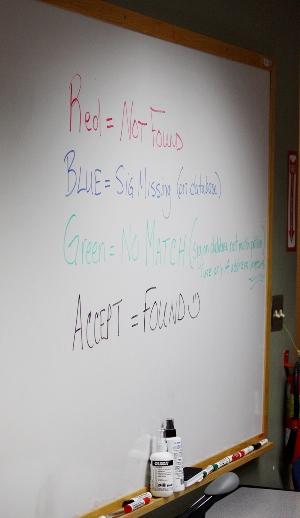 Red = Not Found
BLUE = Sig Missing (on database)
Green = NO MATCH (Sig on database not
ACCEPT = FOUND